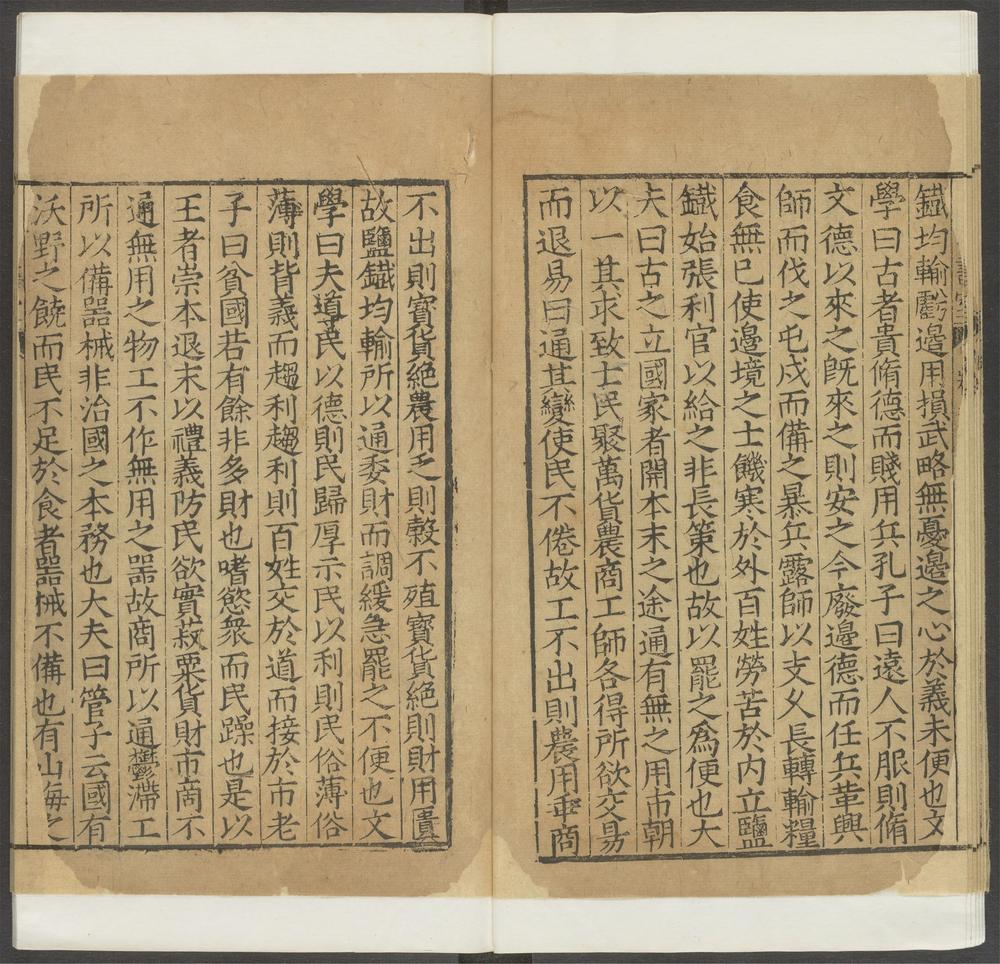 鐵均輸虧邊用損武略無憂邊之心於義未便也文
學曰古者貴脩德而賤用兵孔子曰遠人不服則脩
文德以來之旣來之則安之今廢邊德而任兵革興
師而伐之屯戍而備之暴兵露師以支久長轉輸糧
食無已使邊境之士饑寒於外百姓勞苦於內立鹽
鐵始張利官以給之非長策也故以罷之爲便也大
夫曰古之立國家者開本末之途通有無之用市朝
以一其求致士民聚萬貨農商工師各得所欲交易
而退易曰通其變使民不倦故工不出則農用乖商
不出則寳貨絶農用乏則穀不殖寳貨絶則財用匱
故鹽鐵均輸所以通委財而調緩急罷之不便也文
學曰夫導民以德則民歸厚示民以利則民俗薄俗
薄則背義而趨利趨利則百姓交於道而接於市老
子曰貧國若有餘非多財也嗜慾衆而民躁也是以
王者崇本退末以禮義防民欲實菽粟貨財市商不
通無用之物工不作無用之器故商所以通鬱滯工
所以備器械非治國之本務也大夫曰管子云國有
沃野之饒而民不足於食者器械不備也有山海之